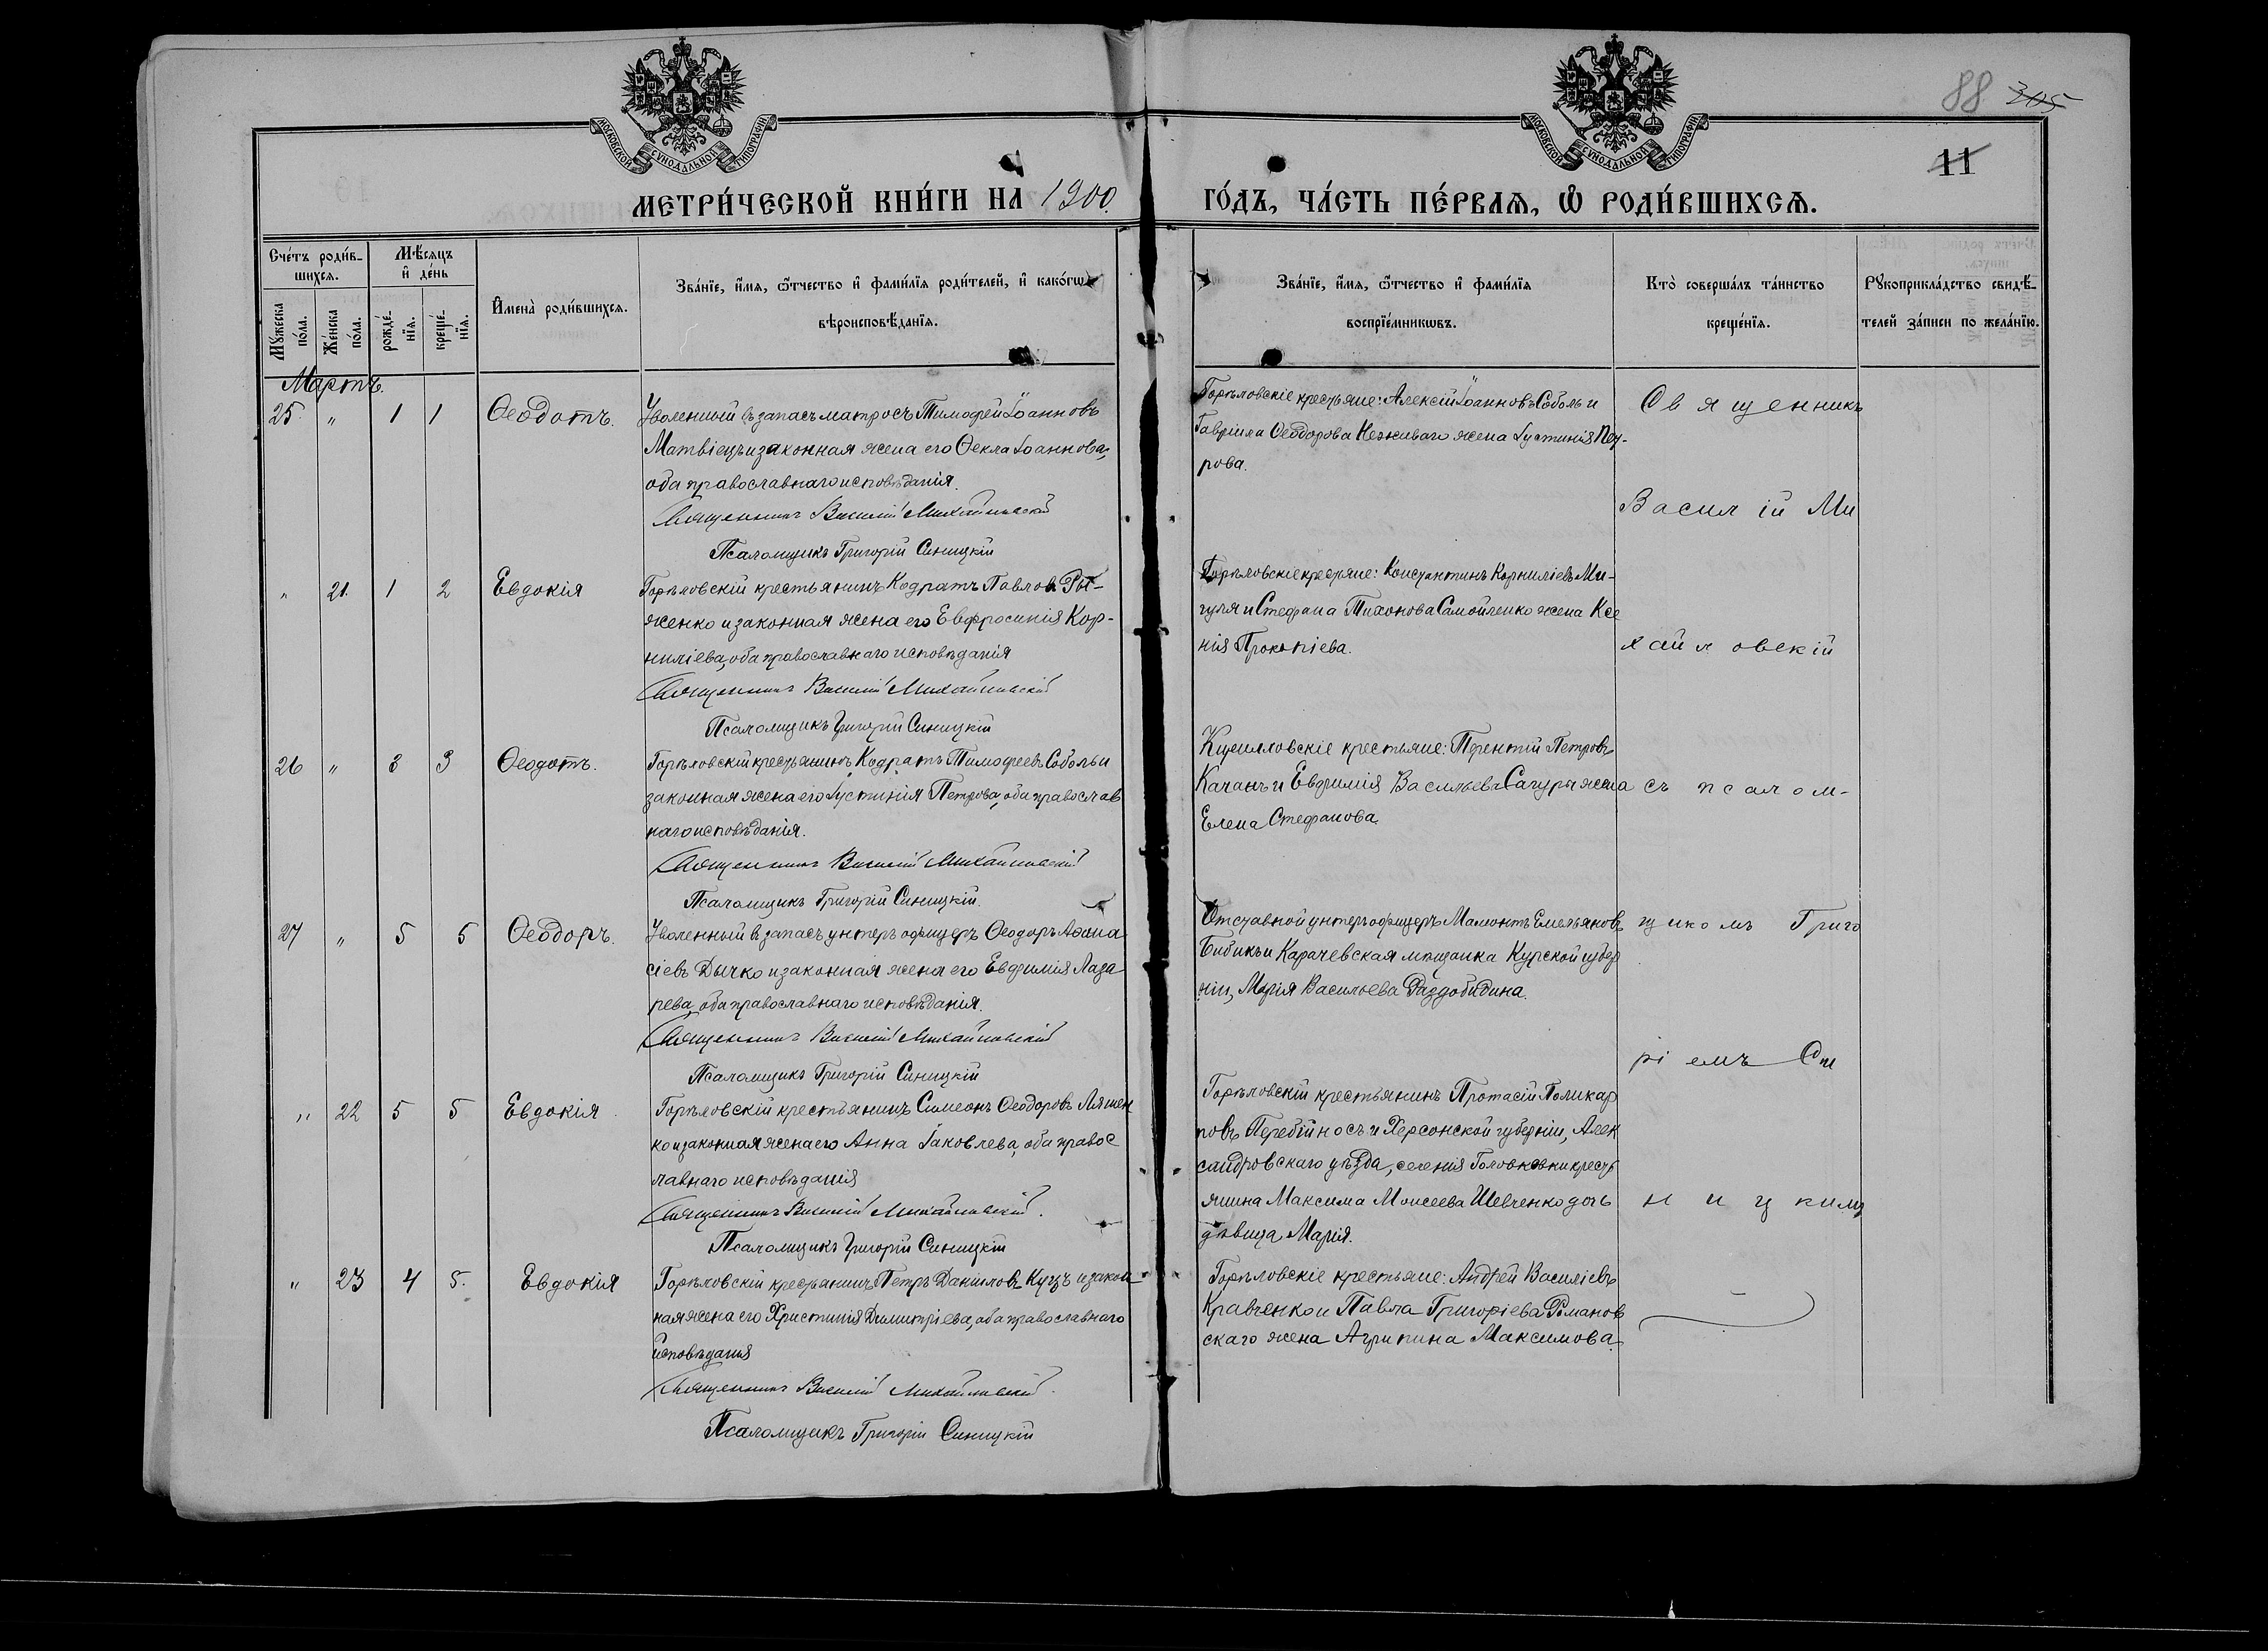 88 305
11
МОСКОВСКОЙ СѴНОДАЛЬНОЙ ТИПОГРАФІИ
МОСКОВСКОЙ СѴНОДАЛЬНОЙ ТИПОГРАФІИ
МЕТРИ́ЧЕСКОЙ КНИ́ГИ НА 1900. ГО́ДЪ, ЧА́СТЬ ПЕ́РВАѦ, Ѡ РОДИ́ВШИХСѦ.
Сче́тъ роди́в-
шихсѧ.
Мѣ́сѧцъ
и҆ де́нь
Мꙋ́жеска
по́ла.
Же́нска
по́ла.
рожде́-
нїѧ.
креще́-
нїѧ.
И҆мена̀ роди́вшихсѧ.
Зва́нїе, и҆́мѧ, ѻ҆́тчество и҆ фами́лїѧ роди́телей, и҆ како́гѡ
вѣроисповѣ́данїѧ.
Зва́нїе, и҆́мѧ, ѻ҆́тчество и҆ фами́лїѧ
воспрїе́мникѡвъ.
Кто̀ соверша́лъ та́инство
креще́нїѧ.
Рꙋкоприкла́дство свидѣ́-
телей за́писи по жела́нїю.
Мартъ.
25. " 1 1 Ѳеодотъ.
Уволенный въ запасъ матросъ Тимофей Іоанновъ
Матвіецъ и законная жена его Ѳекла Іоаннова,
оба православнаго исповѣданія.
Священникъ Василій Михайловскій
Псаломщикъ Григорій Синицкій
Горѣловскіе крестьяне: Алексій Іоанновъ Соболь и
Гавріила Ѳеодорова Неживаго жена Іустинія Пет-
рова.
" 21. 1 2 Евдокія
Горѣловскій крестьянинъ Кодратъ Павловъ Ры-
женко и законная жена его Евфросинія Кор-
ниліева, оба православнаго исповѣданія
Священникъ Василій Михайловскій
Псаломщикъ Григорій Синицкій
Горѣловскіе крестьяне: Константинъ Корниліевъ Ми-
гуля и Стефана Тихонова Самойленко жена Ксе
нія Прокопіева.
26 " 3 3 Ѳеодотъ.
Горѣловскій крестьянинъ Кодратъ Тимофеевъ Соболь и
законная жена его Іустинія Петрова, оба православ
наго исповѣданія.
Священникъ Василій Михайловскій
Псаломщикъ Григорій Синицкій.
крестьяне: Терентій Петровъ
Качанъ и Евфимія Васильева Сагуры жена
Елена Стефанова.
27 " 5 5 Ѳеодоръ.
Уволенный въ запасъ унтеръ офицеръ Ѳеодоръ Аѳана
сіевъ Дычко и законная жена его Евфимія Лаза
рева, оба православнаго исповѣданія.
Священникъ Василій Михайловскій
Псаломщикъ Григорій Синицкій
Отставной унтеръ офицеръ Мамонтъ Емельяновъ
Бибикъ и Карачевская мѣщанка Курской губер
ніи, Марія Васильева Раздобудина.
" 22 5 5 Евдокія
Горѣловскій крестьянинъ Симеонъ Ѳеодоровъ Ляшен
ко и законная жена его Анна Іаковлева, оба правос
лавнаго исповѣданія
Священникъ Василій Михайловскій.
Псаломщикъ Григорій Синицкій
Горѣловскій крестьянинъ Протасій Поликар
повъ Перебійносъ и Херсонской губерніи, Алек
сандровскаго уѣзда, селенія Головковки кресть
янина Максима Моисеева Шевченко дочь
дѣвица Марія.
" 23 4 5. Евдокія
Горѣловскій крестьянинъ Петръ Даниловъ Куцъ и закон
ная жена его Христинія Димитріева, оба православнаго
исповѣданія
Священникъ Василій Михайловскій.
Псаломщикъ Григорій Синицкій
Горѣловскіе крестьяне: Андрей Василіевъ
Кравченко и Павла Григоріева Романов
скаго жена Агрипина Максимова.
Священникъ
Василій Ми
хайловскій
съ псалом-
щикомъ Григо
ріемъ Си
ницкимъ